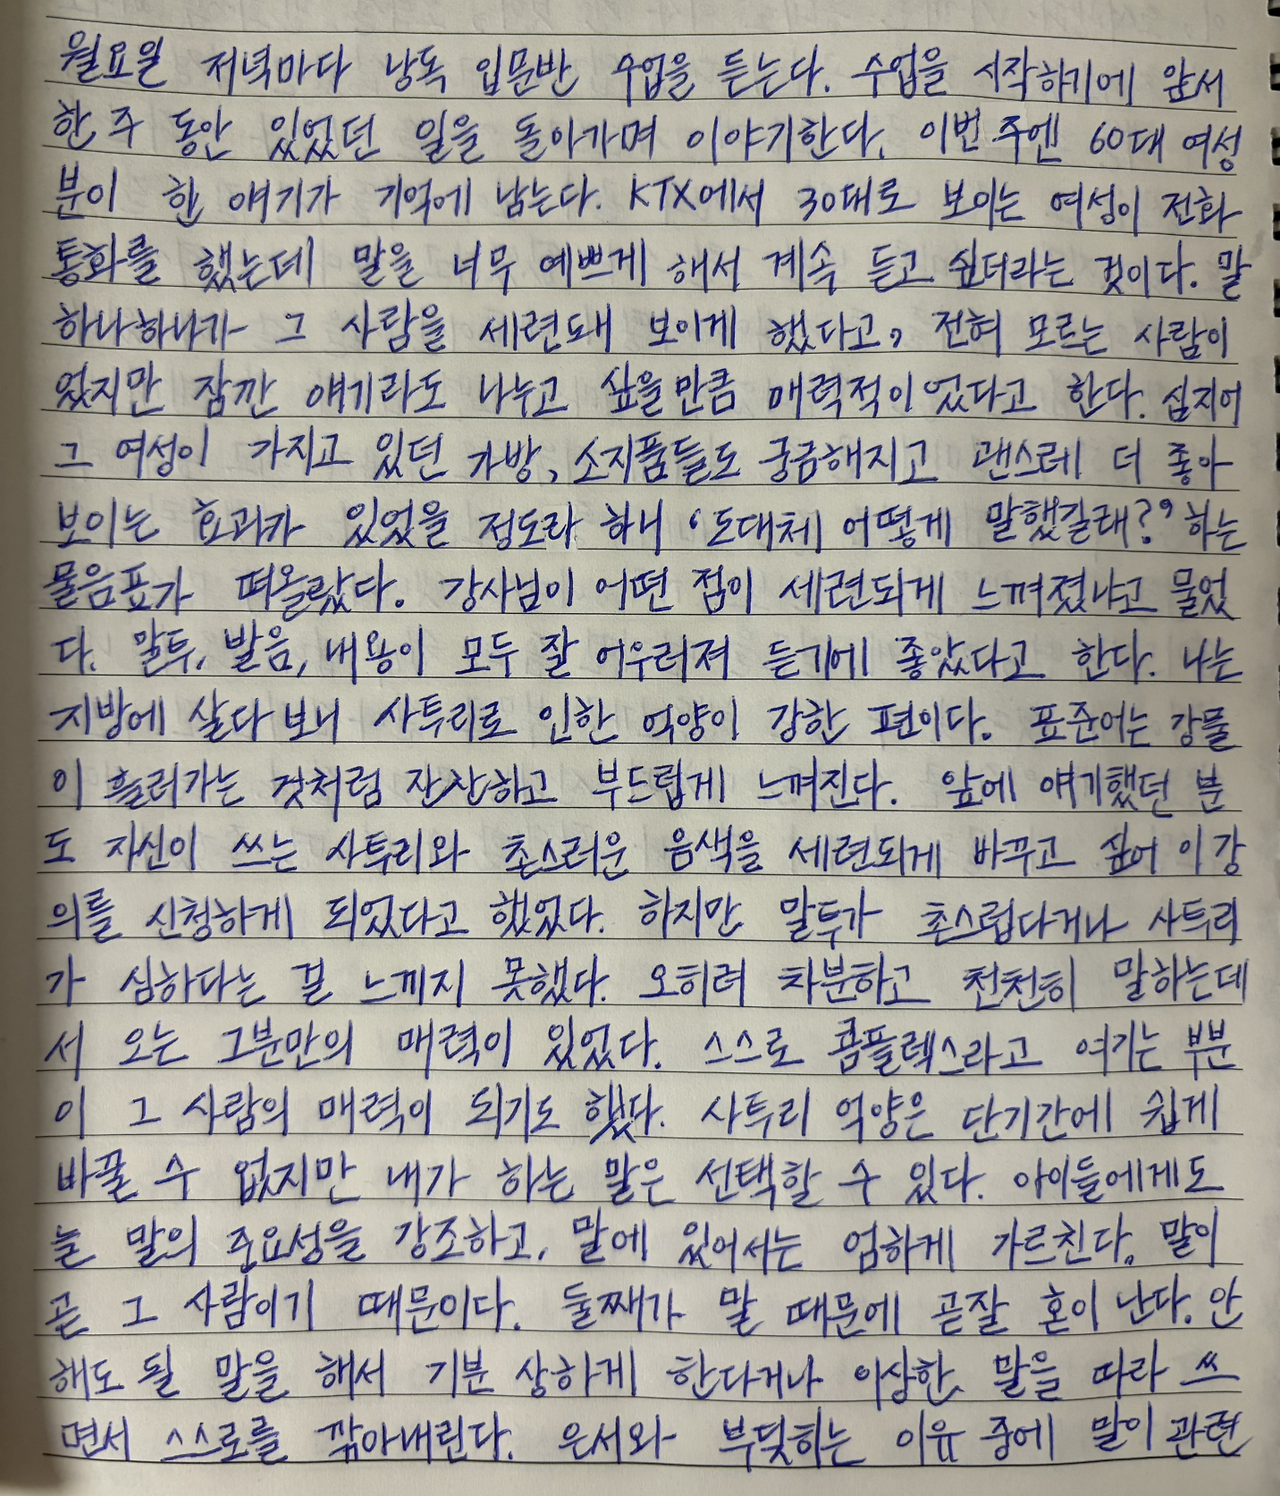 월요일 저녁마다 낭독 입문반 수업을 듣는다. 수업을 시작하기에 앞서
한 주 동안 있었던 일을 돌아가며 이야기한다. 이번 주엔 60대 여성
분이 한 얘기가 기억에 남는다. KTX에서 30대로 보이는 여성이 전화
통화를 했는데 말을 너무 예쁘게 해서 계속 듣고 싶더라는 것이다. 말
하나하나가 그 사람을 세련돼 보이게 했다고, 전혀 모르는 사람이
었지만 잠깐 얘기라도 나누고 싶을만큼 매력적이었다고 한다. 심지어
그 여성이 가지고 있던 가방, 소지품들도 궁금해지고 괜스레 더 좋아
보이는 효과가 있었을 정도라 하니 '도대체 어떻게 말했길래?' 하는
물음표가 떠올랐다. 강사님이 어떤 점이 세련되게 느껴졌냐고 물었
다. 말투, 발음, 내용이 모두 잘 어우러져 듣기에 좋았다고 한다. 나는
지방에 살다보니 사투리로 인한 억양이 강한 편이다. 표준어는 강물
이 흘러가는 것처럼 잔잔하고 부드럽게 느껴진다. 앞에 얘기했던 분
도 자신이 쓰는 사투리와 촌스러운 음색을 세련되게 바꾸고 싶어 이 강
의를 신청하게 되었다고 했었다. 하지만 말투가 촌스럽다거나 사투리
가 심하다는 걸 느끼지 못했다. 오히려 차분하고 천천히 말하는데
서 오는 그분만의 매력이 있었다. 스스로 콤플렉스라고 여기는 부분
이 그 사람의 매력이 되기도 했다. 사투리 억양은 단기간에 쉽게
바꿀 수 없지만 내가 하는 말은 선택할 수 있다. 아이들에게도
늘 말의 중요성을 강조하고, 말에 있어서는 엄하게 가르친다. 말이
곧 그 사람이기 때문이다. 둘째가 말 때문에 곧잘 혼이 난다. 안
해도 될 말을 해서 기분 상하게 한다거나 이상한 말을 따라 쓰
면서 스스로를 깎아내린다. 은서와 부딪히는 이유 중에 말이 관련